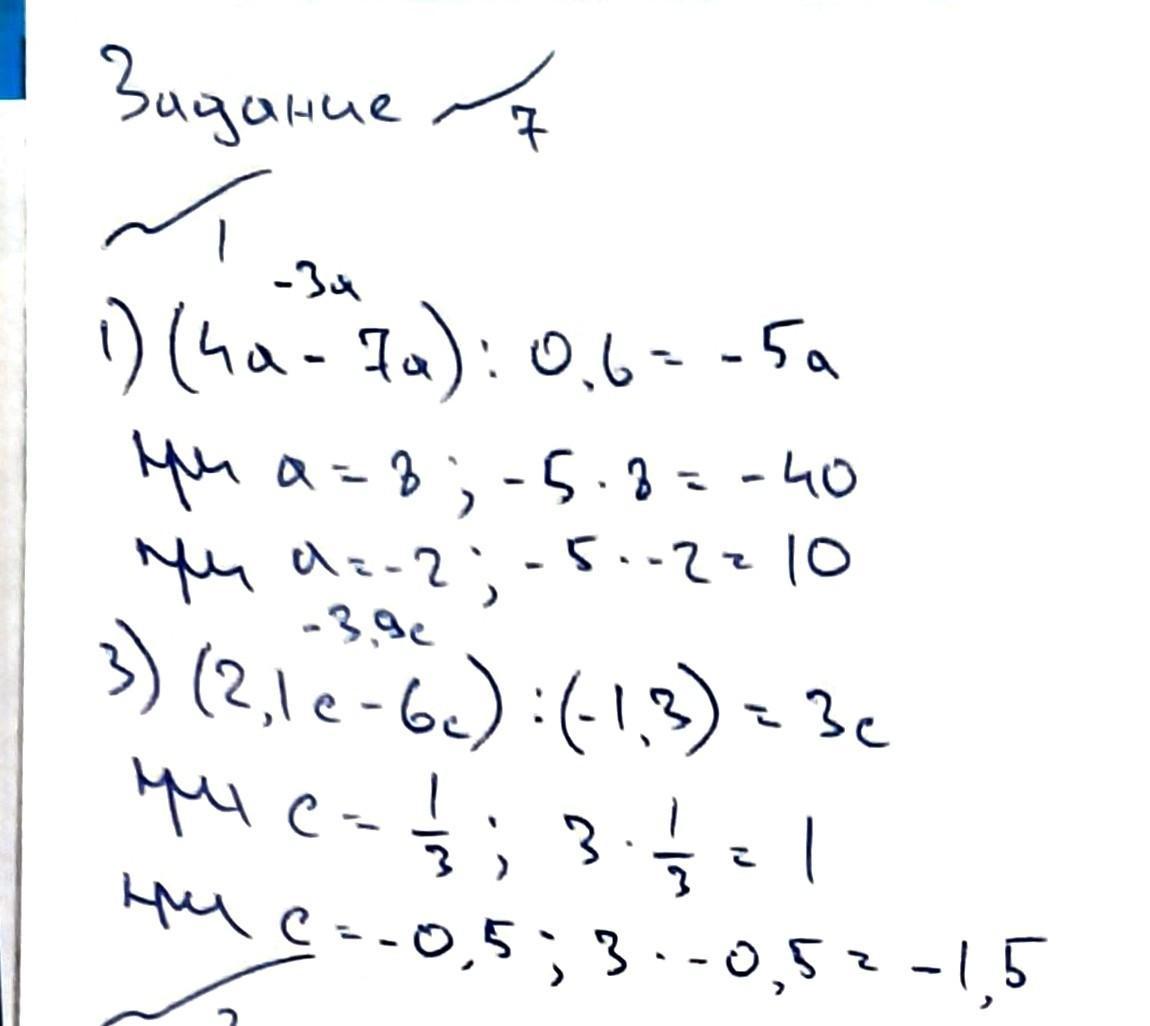 Задание √7
√1
-3a
1) (4a - 7a) : 0,6 = - 5a
при a = 8 ; - 5 · 8 = - 40
при a = - 2 ; - 5 · - 2 = 10
- 3,9c
3) (2,1c - 6c) : (-1,3) = 3c
при c = 1/3 ; 3 · 1/3 = 1
при c = - 0,5 ; 3 · - 0,5 = - 1,5